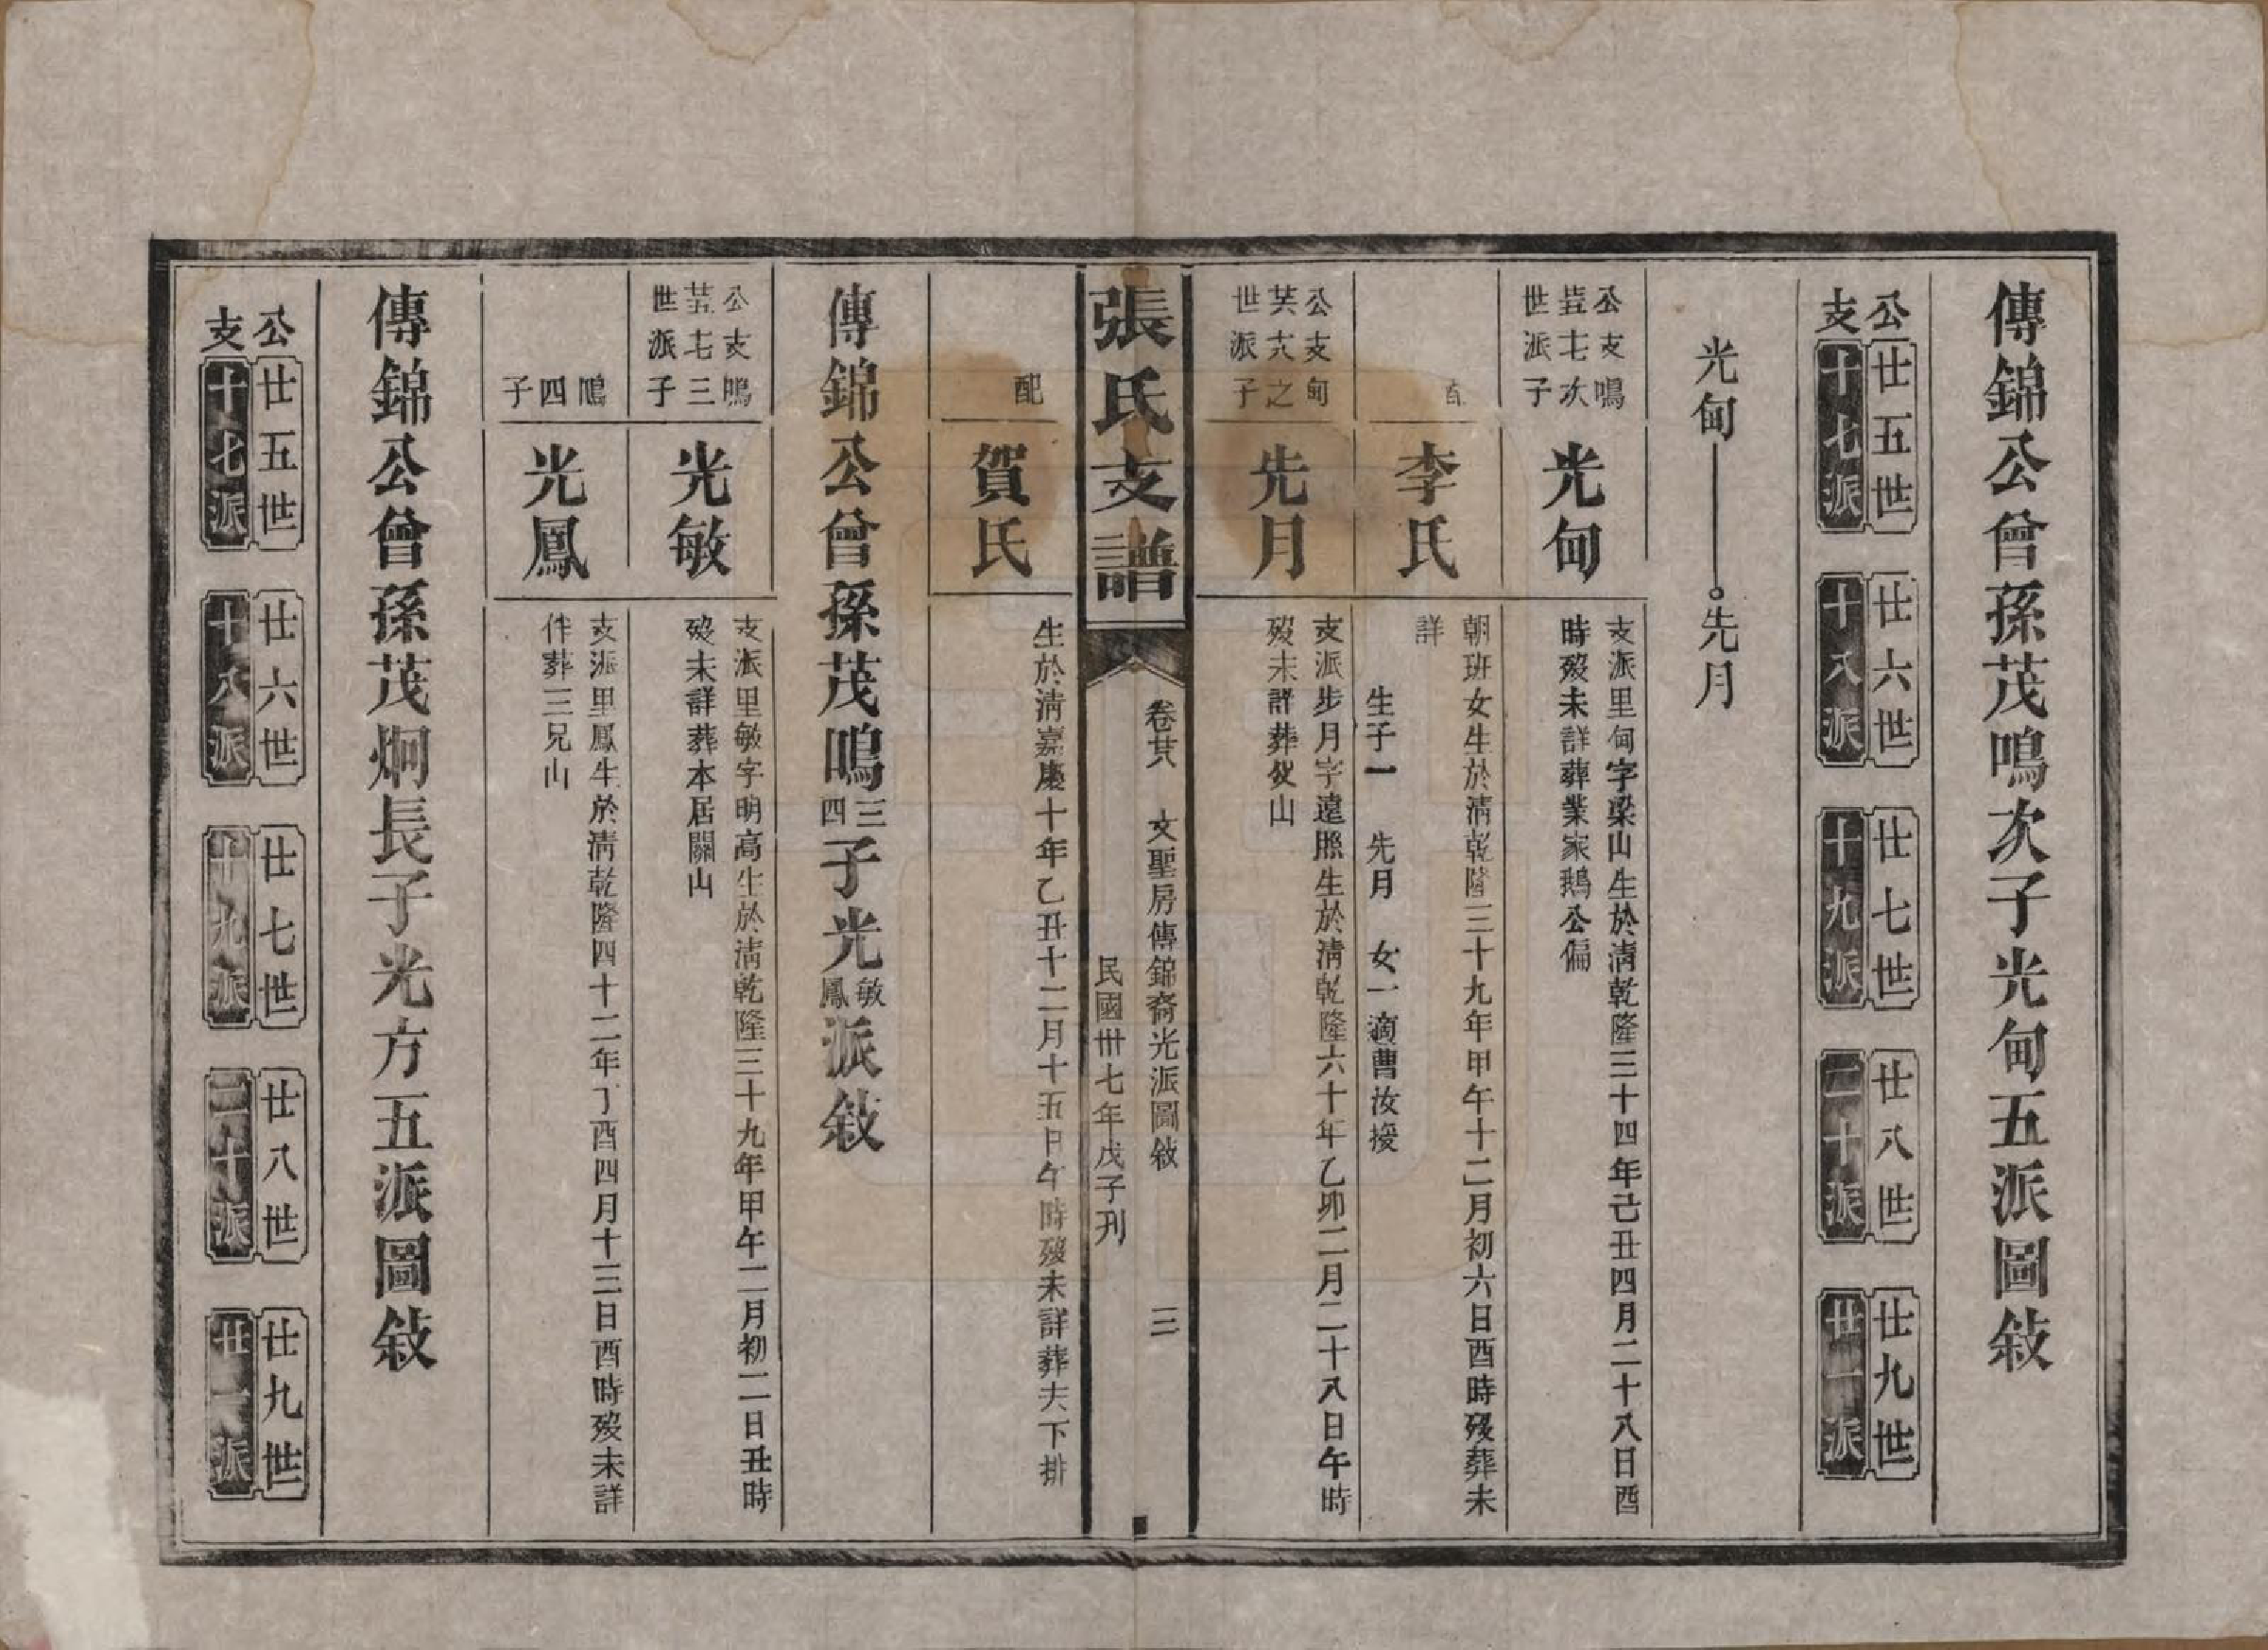 傳錦公曾孫茂鳴次子光甸五派圖敍
公支
廿五世 十七派
廿六世 十八派
廿七世 十九派
廿八世 二十派
廿九世 廿一派
光甸——先月
公支鳴
次
世派子
光甸
支派里甸字梁山生於清乾隆三十四年己丑四月二十八日酉
時歿未詳葬業家鵝公偏
配
李氏
朝班女生於清乾隆三十九年甲午十二月初六日酉時歿葬未
詳
生子一 先月 女一適曹汝援
公支甸
之
世派子
先月
支派步月字遠照生於清乾隆六十年乙卯二月二十八日午時
歿未詳葬 山
張氏支譜
卷廿六 文聖房傳錦裔光派圖敘 三
民國卅七年戊子刊
配
賀氏
生於清嘉慶十年乙丑十二月十五日午時歿未詳葬夫下排
傳錦公曾孫茂鳴三四子光敏鳳派敍
公支鳴
三
世派子
光敏
支派里敏字明高生於清乾隆三十九年甲午二月初二日丑時
歿未詳葬本居關山
鳴四子
光鳳
支派里鳳生於清乾隆四十二年丁酉四月十三日酉時歿未詳
伴葬三兄山
傳錦公曾孫茂炯長子光方五派圖敍
公支
廿五世 十七派
廿六世 十八派
廿七世 十九派
廿八世 二十派
廿九世 廿一派